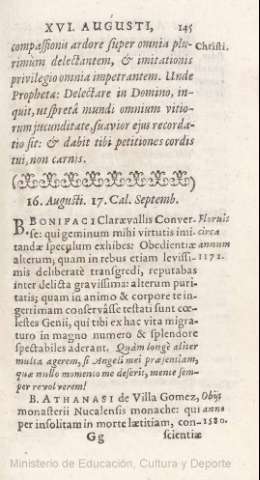 XVI. AUGUSTI, 145
compassionis ardore super omnia plu- Christi.
rimùm delectantem, & imitationis
privilegio omnia impetrantem. Unde
Propheta: Delectare in Domino, in-
quit, ut spretâ mundi omnium vitio-
rum jucunditate, suavior ejus recorda-
tio sit: & dabit tibi petitiones cordis
tui, non carnis.
16. Augusti. 17. Cal. Septemb.
B. BONIFACI Claræ vallis Conver- Floruit
se: qui geminum mihi virtutis imi- circa
tandæ speculum exhibes: Obedientiæ annum
alterum; quam in rebus etiam levissi- 1171.
mis deliberatè transgredi, reputabas
inter delicta gravissima: alterum puri-
tatis; quam in animo & corpore te in-
tegerrimam conservâsse testati sunt cœ-
lestes Genii, qui tibi ex hac vita migra-
turo in magno numero & splendore
spectabiles aderant. Quàm longè aliter
multa agerem, si Angeli mei præsentiam,
quæ nullo momento me deserit, mente sem-
per revolverem!
B. ATHANASI de Villa Gomez, Obijt
monasterii Nucalensis monache: qui anno
per insolitam in morte lætitiam, con- 1580.
Gg scientiæ
Ministerio de Educación, Cultura y Deporte